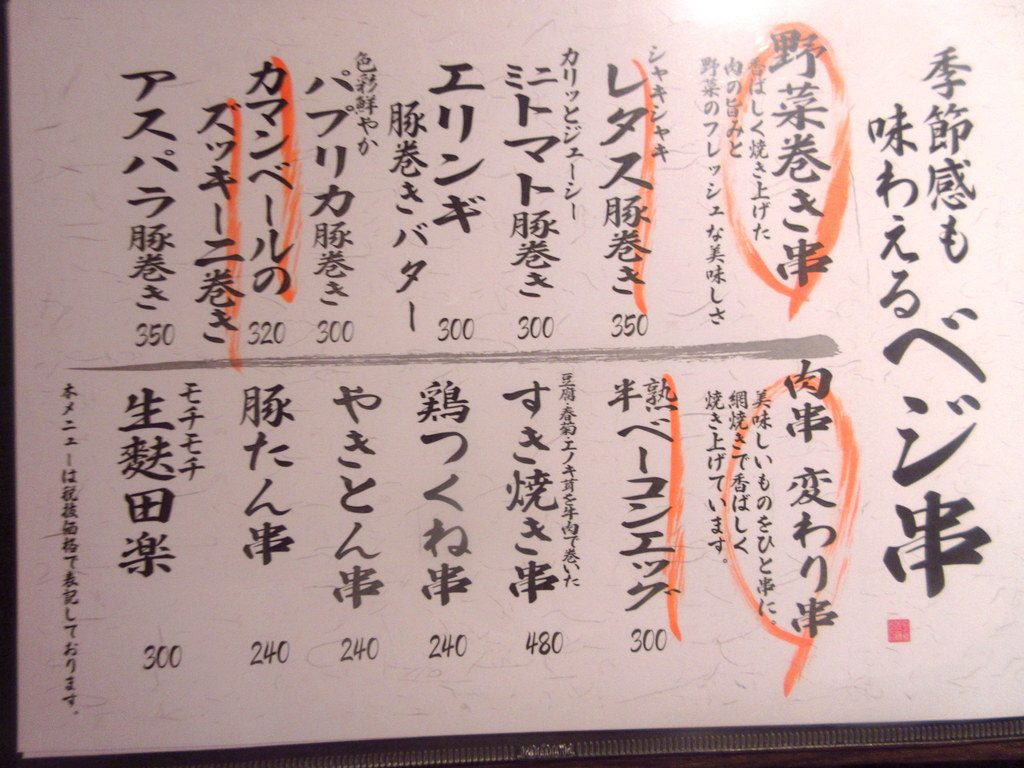 季節感も
味わえる
ベジ串
野菜巻き串
香ばしく焼き上げた
肉の旨みと
野菜のフレッシュな美味しさ
シャキシャキ
レタス豚巻き
350
カリッとジューシー
ミニトマト豚巻き
300
エリンギ
豚巻きバター
300
色彩鮮やか
パプリカ豚巻き
300
カマンベールの
ズッキーニ巻き
320
アスパラ豚巻き
350
肉串 変わり串
美味しいものをひと串に。
網焼きで香ばしく
焼き上げています。
半熟ベーコンエッグ
300
豆腐・春菊・エノキ茸を牛肉で巻いた
すき焼き串
480
鶏つくね串
240
やきとん串
240
豚たん串
240
モチモチ
生麩田楽
300
本メニューは税抜価格で表記しております。